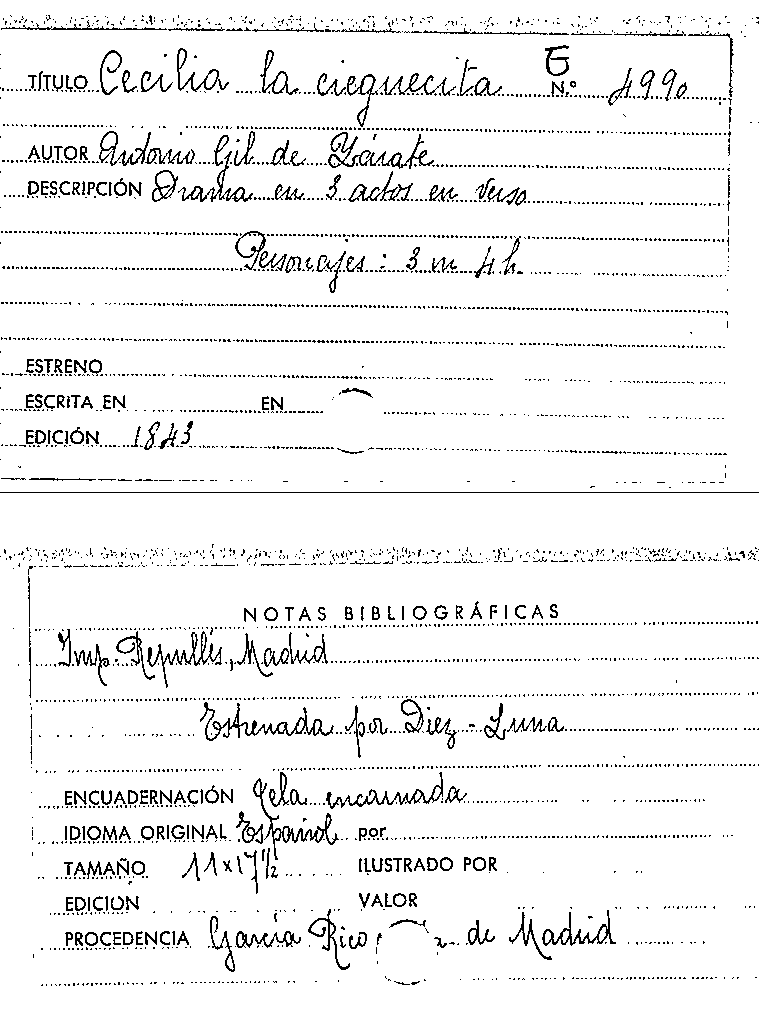 TÍTULO Cecilia la cieguecita N.º 4990
AUTOR Antonio Gil de Zárate
DESCRIPCIÓN Drama en 3 actos en verso
Personajes: 3 m 4 h.
ESTRENO
ESCRITA EN EN
EDICIÓN 1843
NOTAS BIBLIOGRÁFICAS
Imp. Repullés, Madrid
Estrenada por Diez-Luna
ENCUADERNACIÓN Tela encarnada
IDIOMA ORIGINAL Español por
TAMAÑO 11x17½ ILUSTRADO POR
EDICION VALOR
PROCEDENCIA García Rico de Madrid